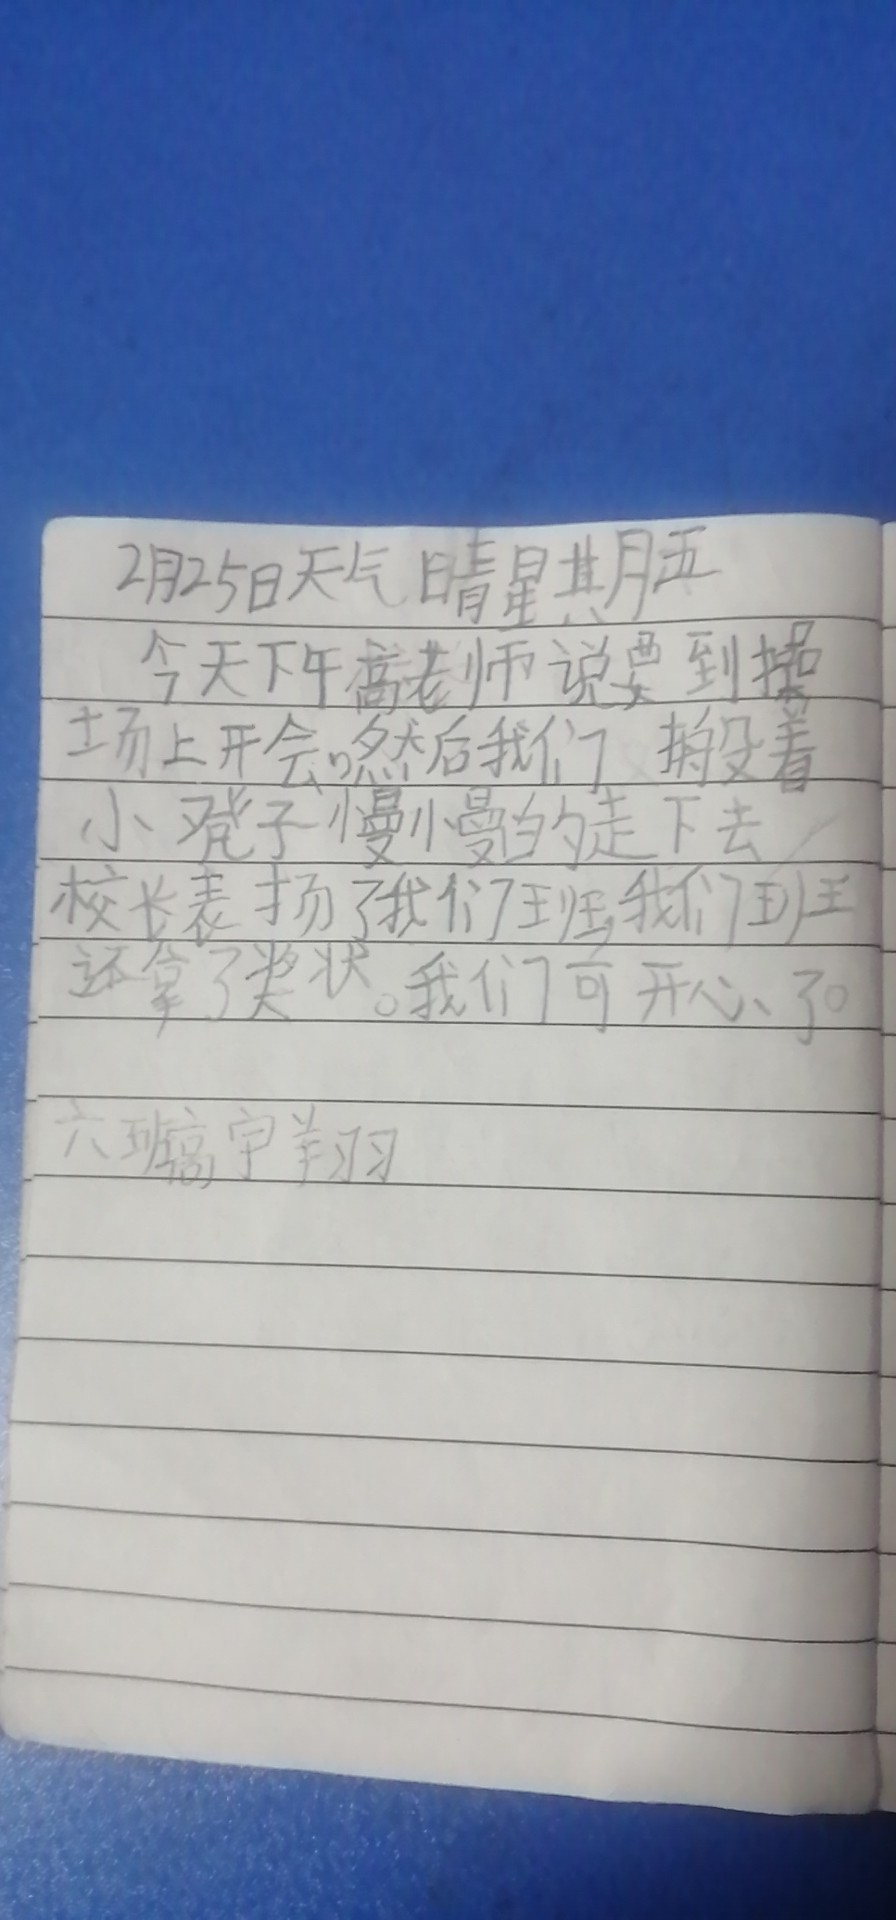 2月25日天气晴星期五
今天下午高老师说要到操
场上开会。然后我们搬着
小凳子慢慢的走下去
校长表扬了我们班,我们班
还拿了奖状。我们可开心了。
六班高宇翔